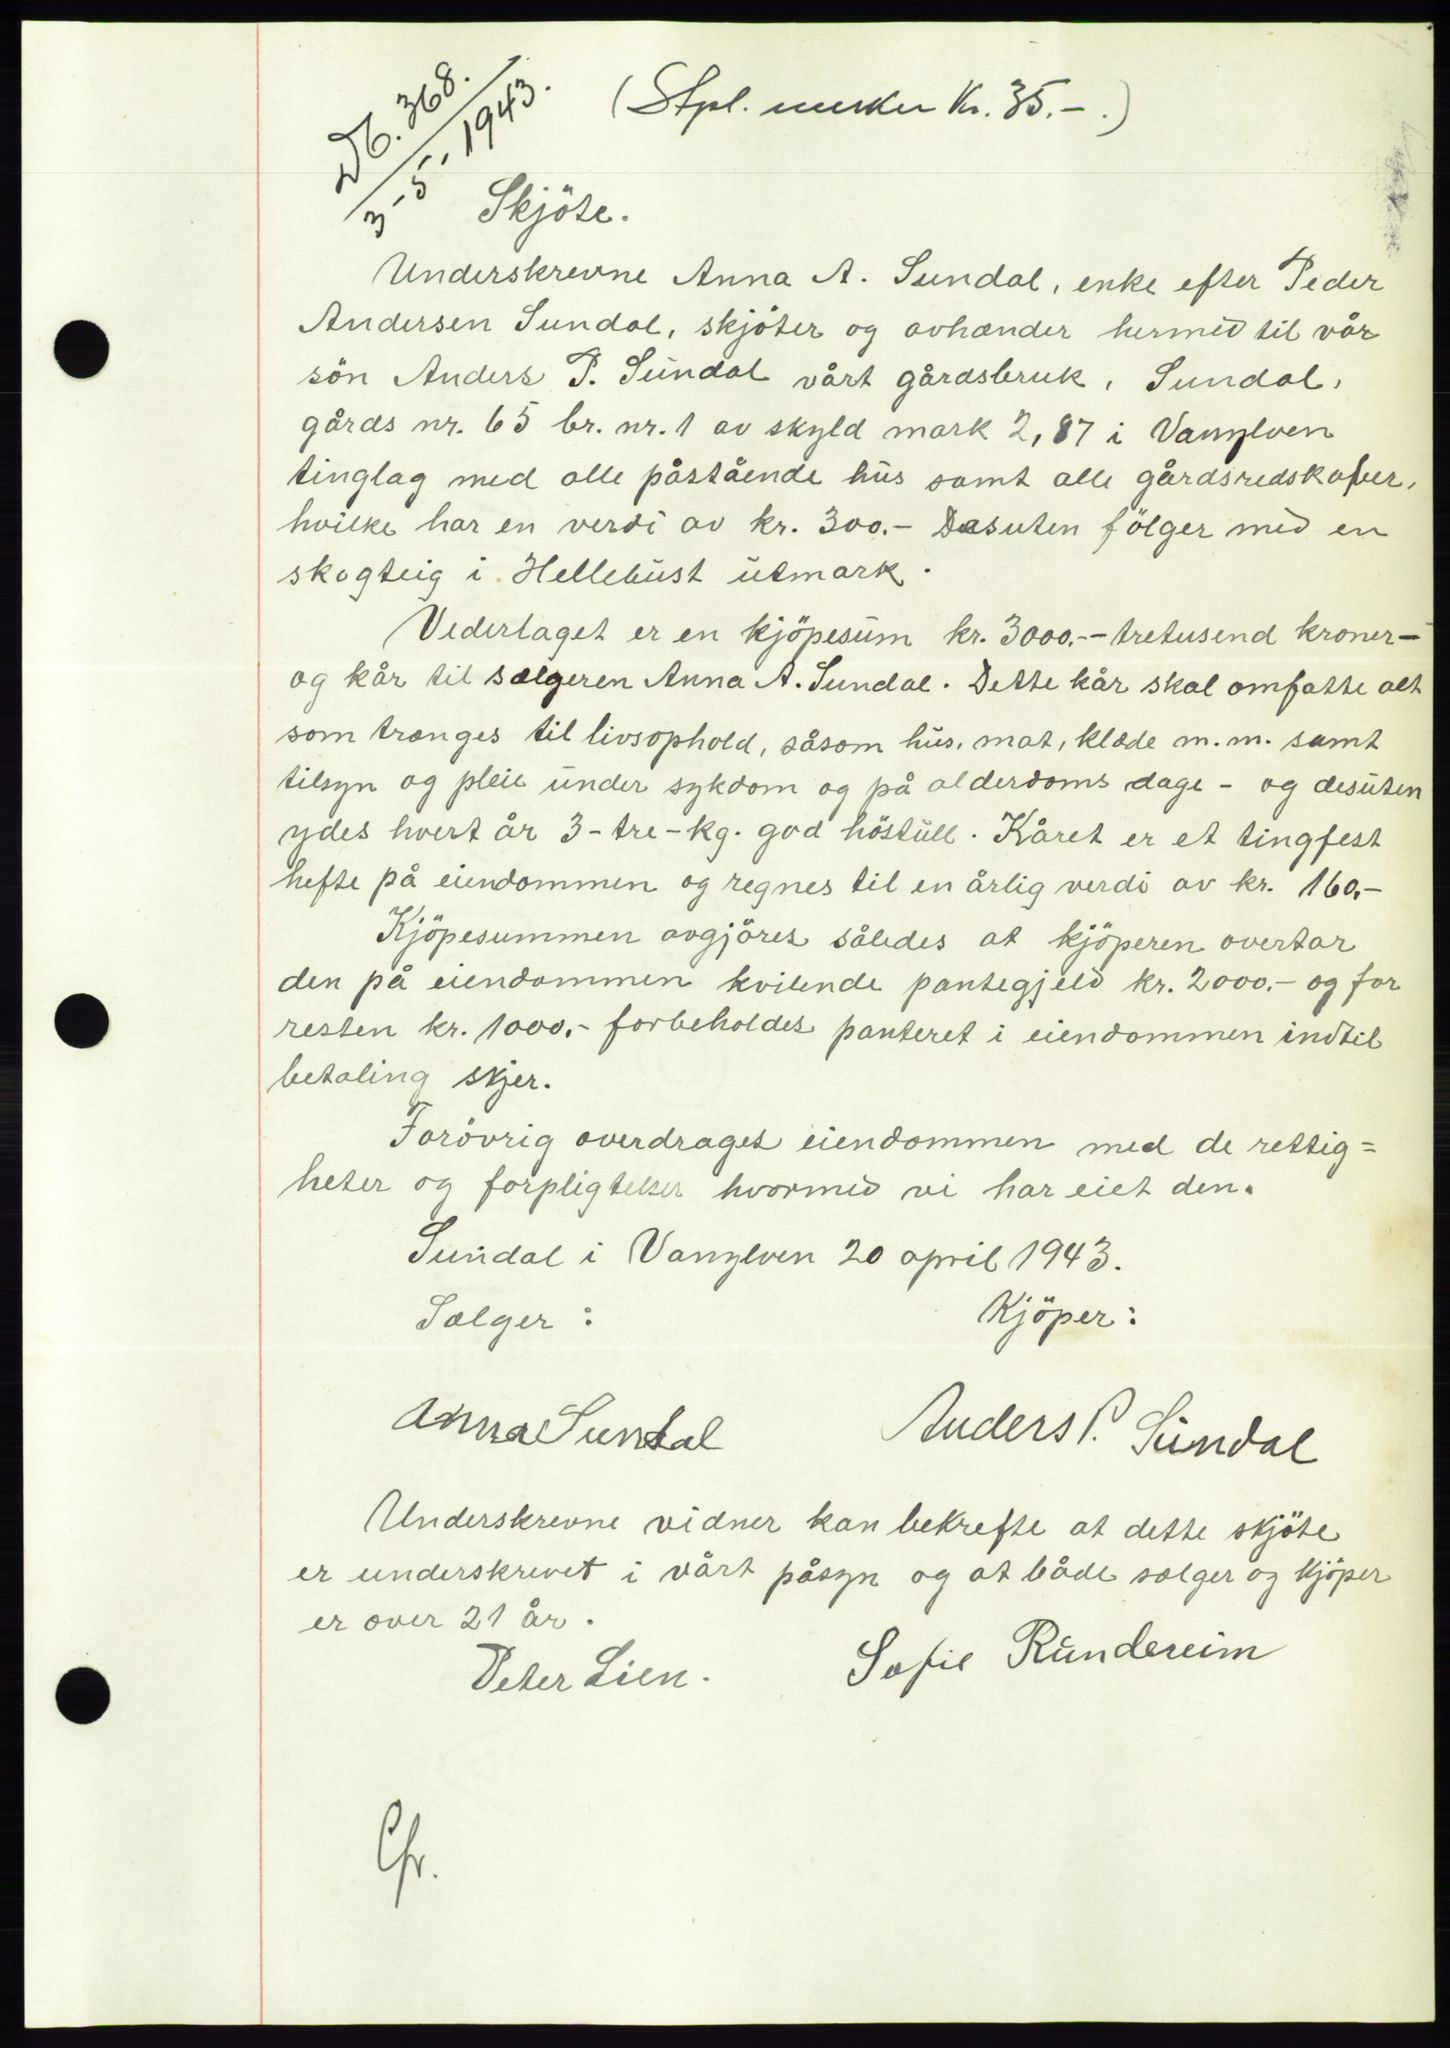 Db. 368.
3-5-1943.
(Stpl. merker Kr. 35.-.)
Skjöte.
Underskrevne Anna A. Sundal, enke efter Peder
Andersen Sundal, skjöter og avhænder hermed til vår
sön Anders P. Sundal vårt gårdsbruk, Sundal,
gårds nr. 65 br. nr. 1 av skyld mark 2,87 i Vanylven
tinglag med alle påstående hus samt alle gårdsredskaper,
hvilke har en verdi av kr. 300.- Desuten fölger med en
skogteig i Hellebust utmark.
Vederlaget er en kjöpesum kr. 3000.-- tretusend kroner -
og kår til sælgeren Anna A. Sundal. Dette kår skal omfatte alt
som trænges til livsophold, såsom hus, mat, klæde m.m. samt
tilsyn og pleie under sykdom og på alderdoms dage - og desuten
ydes hvert år 3 - tre - kg. god höstull. Kåret er et tingfest
hefte på eiendommen og regnes til en årlig verdi av kr. 160,-
Kjöpesummen avgjöres således at kjöperen overtar
den på eiendommen kvilende pantegjeld kr. 2000.- og for
resten kr. 1000,- forbeholdes panteret i eiendommen indtil
betaling skjer.
Forövrig overdrages eiendommen med de rettig=
heter og forpligtelser hvormed vi har eiet den.
Sundal i Vanylven 20 april 1943.
Sælger :
Kjöper :
Anna Sundal
Anders P. Sundal
Underskrevne vidner kan bekrefte at dette skjöte
er underskrevet i vårt påsyn og at både sælger og kjöper
er over 21 år.
Peter Lien.
Sofie Rundereim
Chr.